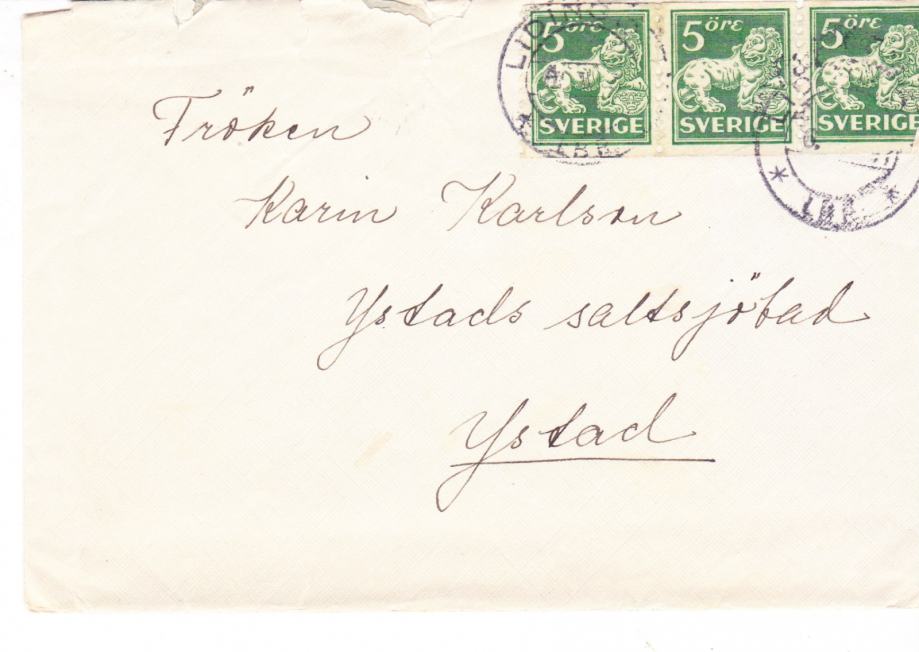 5 öre 5 öre 5 öre
SVERIGE SVERIGE SVERIGE
LBR
LBR
Fröken
Karin Karlson
Ystads saltsjöbad
Ystad